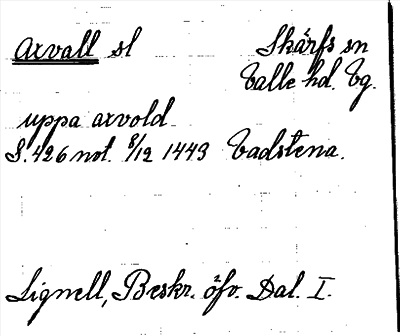 Axvall sl Skärfs sn
Valle hd. Vg.
uppa axvold
S. 426 not. 8/12 1443 Vadstena.
Lignell, Beskr. öfv. Dal. I.